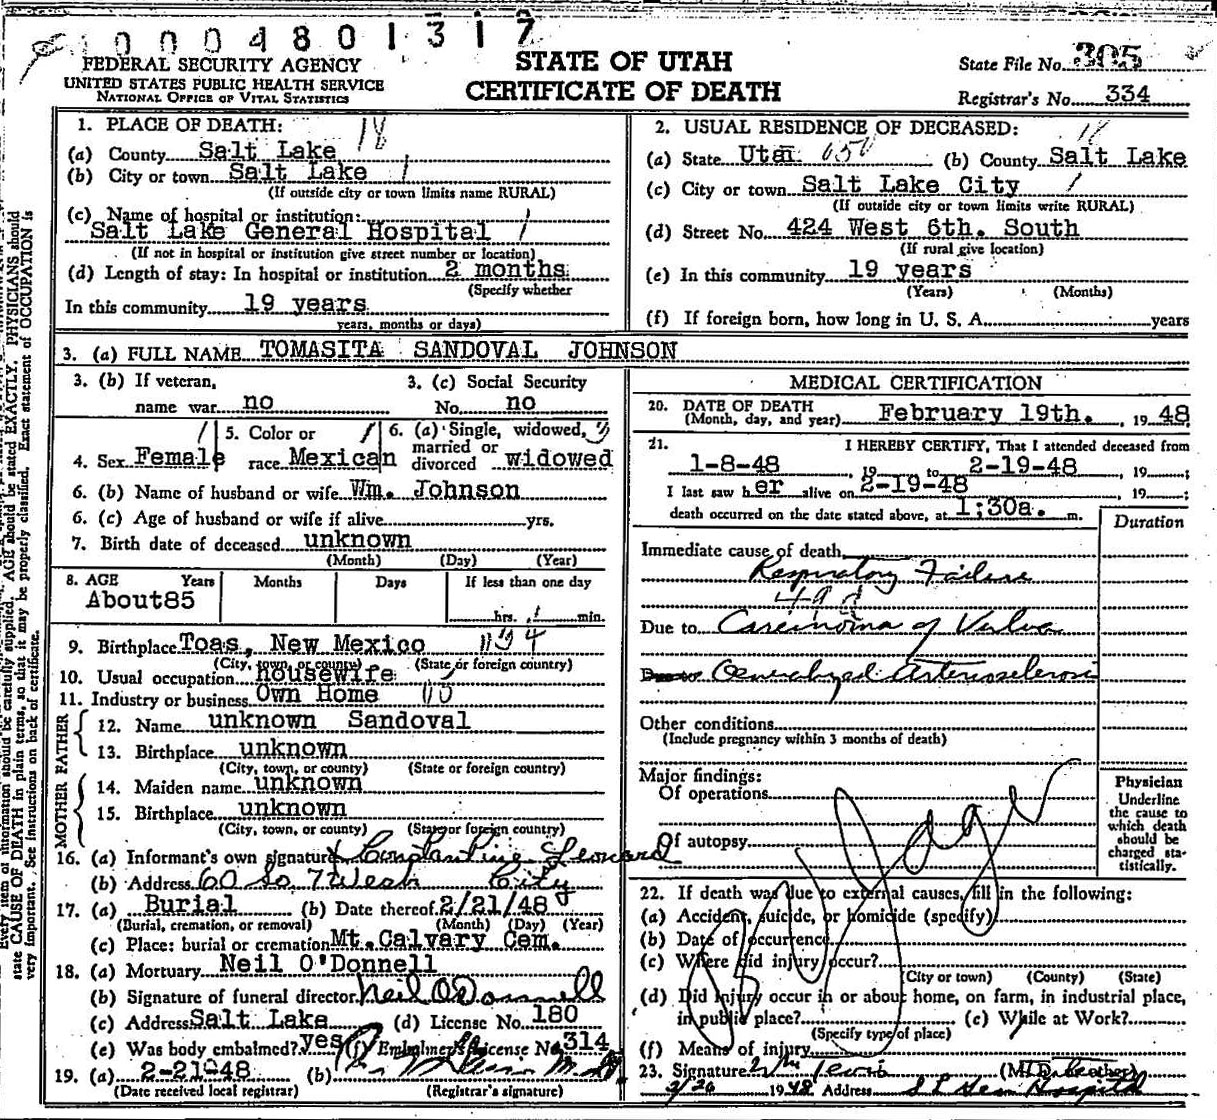 0004801317
FEDERAL SECURITY AGENCY
UNITED STATES PUBLIC HEALTH SERVICE
NATIONAL OFFICE OF VITAL STATISTICS
STATE OF UTAH
CERTIFICATE OF DEATH
State File No. 305
Registrar's No. 334
1. PLACE OF DEATH: 18
(a) County Salt Lake
(b) City or town Salt Lake 1
(If outside city or town limits name RURAL)
(c) Name of hospital or institution:
Salt Lake General Hospital 1
(If not in hospital or institution give street number or location)
(d) Length of stay: In hospital or institution 2 months
(Specify whether
In this community 19 years
years, months or days)
2. USUAL RESIDENCE OF DECEASED: 18
(a) State Utah 050 (b) County Salt Lake
(c) City or town Salt Lake City 1
(If outside city or town limits write RURAL)
(d) Street No. 424 West 6th. South
(If rural give location)
(e) In this community 19 years
(Years) (Months)
(f) If foreign born, how long in U. S. A. years
3. (a) FULL NAME TOMASITA SANDOVAL JOHNSON
3. (b) If veteran, name war no
3. (c) Social Security No. no
4. Sex Female
5. Color or race Mexican
6. (a) Single, widowed, married or divorced widowed
6. (b) Name of husband or wife Wm. Johnson
6. (c) Age of husband or wife if alive yrs.
7. Birth date of deceased unknown
(Month) (Day) (Year)
8. AGE Years Months Days If less than one day
About85 hrs. min.
9. Birthplace Toas, New Mexico
(City, town, or county) (State or foreign country)
10. Usual occupation housewife
11. Industry or business Own Home
FATHER
12. Name unknown Sandoval
13. Birthplace unknown
(City, town, or county) (State or foreign country)
MOTHER
14. Maiden name unknown
15. Birthplace unknown
(City, town, or county) (State or foreign country)
16. (a) Informant's own signature x Constantine Leonard
(b) Address 60 So. 7 West City
17. (a) Burial (b) Date thereof 2/21/48
(Burial, cremation, or removal) (Month) (Day) (Year)
(c) Place: burial or cremation Mt.Calvary Cem.
18. (a) Mortuary Neil O'Donnell
(b) Signature of funeral director Neil O'Donnell
(c) Address Salt Lake (d) License No. 180
(e) Was body embalmed? yes (f) Embalmer's License No. 314
19. (a) 2-21-48 (b)
(Date received local registrar) (Registrar's signature)
MEDICAL CERTIFICATION
20. DATE OF DEATH
(Month, day, and year) February 19th. , 19 48
21. I HEREBY CERTIFY, That I attended deceased from
1-8-48 , 19 to 2-19-48 , 19 ;
I last saw her alive on 2-19-48 , 19 ;
death occurred on the date stated above, at 1;30a. m.
Duration
Immediate cause of death
Respiratory Failure
Due to Carcinoma of Vulva
Generalized Arteriosclerosis
Other conditions
(Include pregnancy within 3 months of death)
Major findings:
Of operations
Of autopsy
Physician
Underline
the cause to
which death
should be
charged sta-
tistically.
22. If death was due to external causes, fill in the following:
(a) Accident, suicide, or homicide (specify)
(b) Date of occurrence
(c) Where did injury occur?
(City or town) (County) (State)
(d) Did injury occur in or about home, on farm, in industrial place,
in public place? (e) While at Work?
(Specify type of place)
(f) Means of injury
23. Signature Wm Lewis (M.D. or other)
2/20 1948 Address S L Gen Hospital
Every item of information should be carefully supplied. AGE should be stated EXACTLY. PHYSICIANS should
state CAUSE OF DEATH in plain terms, so that it may be properly classified. Exact statement of OCCUPATION is
very important. See instructions on back of certificate.